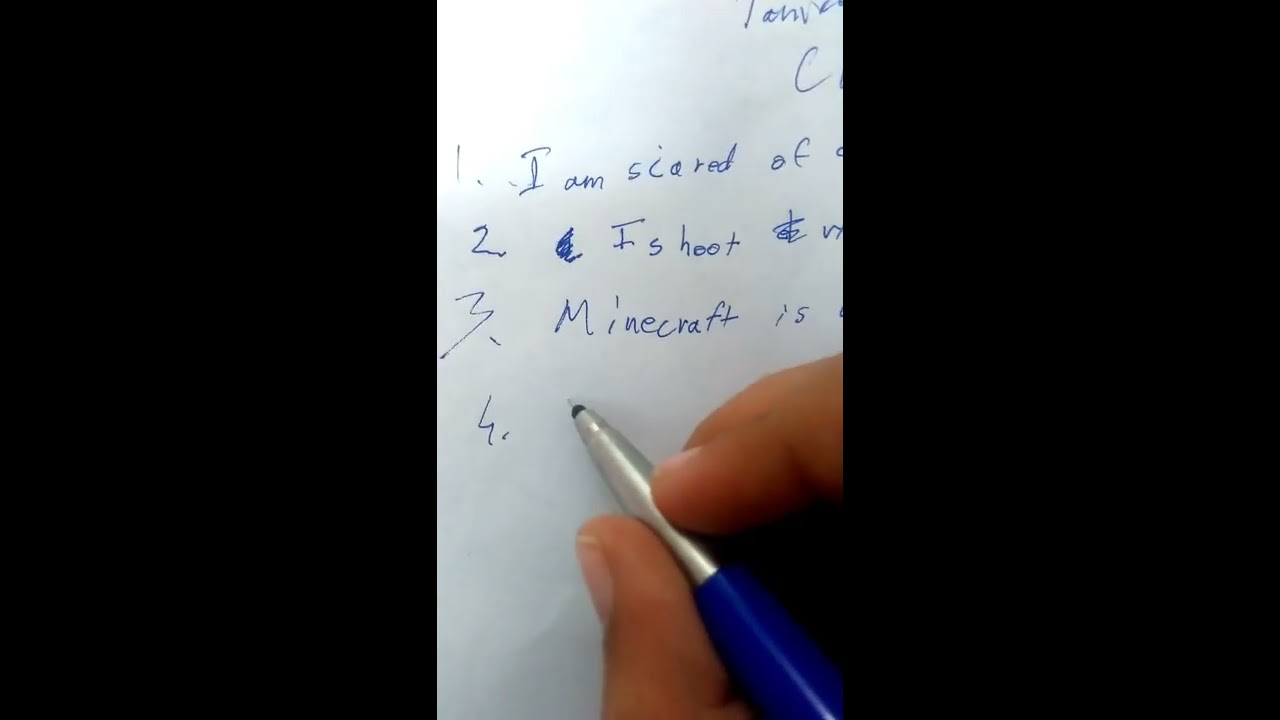 1. I am scared of
2. I shoot
3. Minecraft is
4.